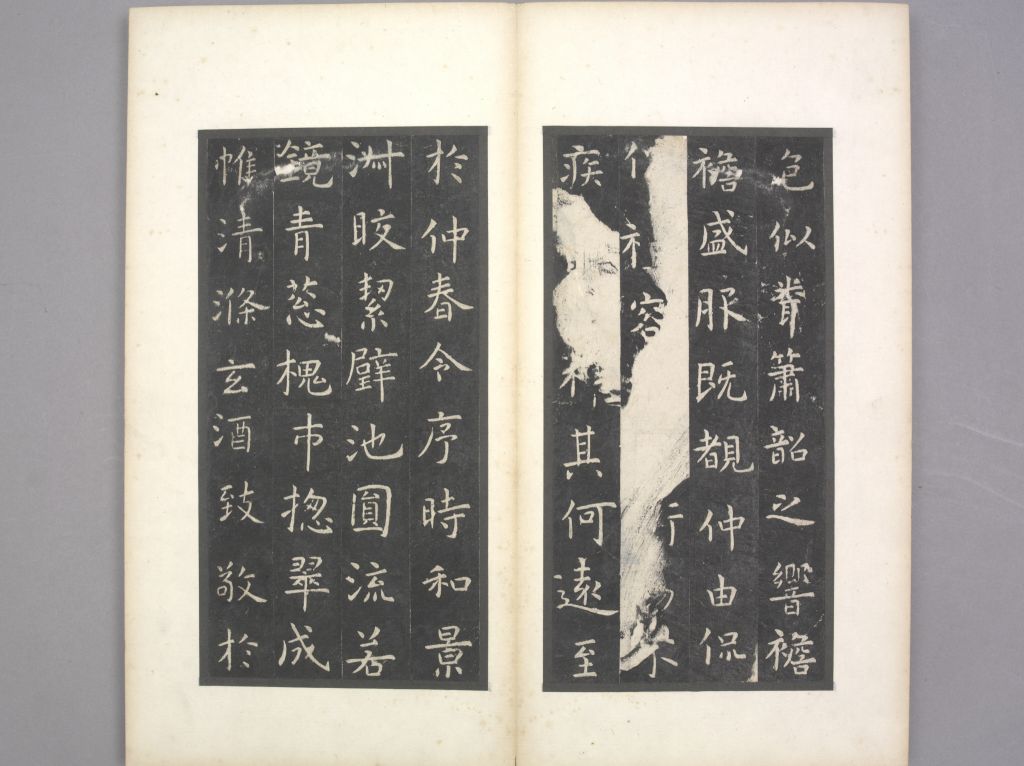 色似簫韶之響襜
襜盛服既覩仲由侃
容不
疾其何遠至
於仲春令序時和景
淑皎絜璧池圓流若
鏡青葱槐市揔翠成
帷清滌玄酒致敬於